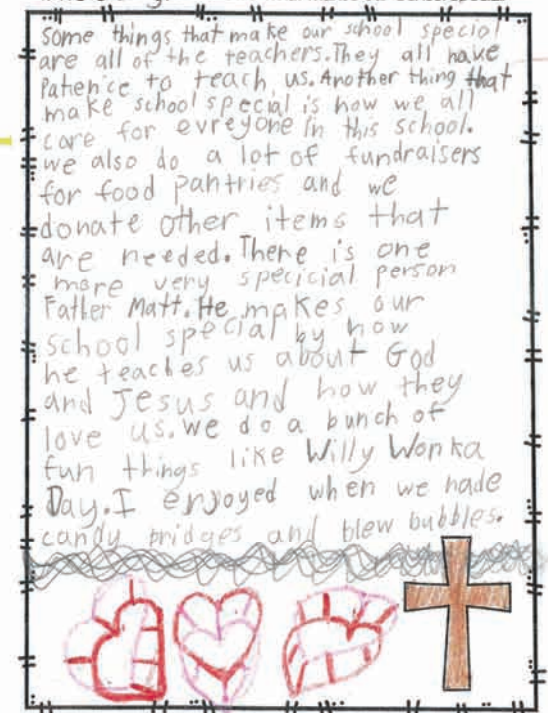 some things that make our school special
are all of the teachers. They all have
Patience to teach us. Another thing that
make school special is how we all
care for evreyone in this school.
we also do a lot of fundraisers
for food pantries and we
donate other items that
are needed. There is one
more very specicial person
Father Matt. He makes our
school special by how
he teaches us about God
and Jesus and how they
love us. we do a bunch of
fun things like Willy Wonka
Day. I enjoyed when we made
candy bridges and blew bubbles.